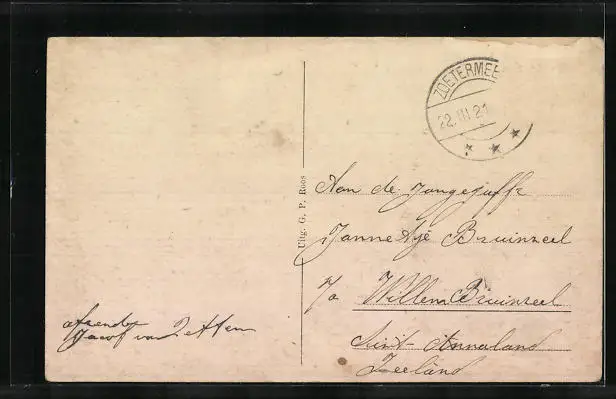 ZOETERMEE
22.III.21
Uitg. G. P. Roos
Aan de Jongejuffr
Jannetje Bruinzeel
p/a Willem Bruinzeel
Sint-Annaland
Zeeland
afzender
Jacob van